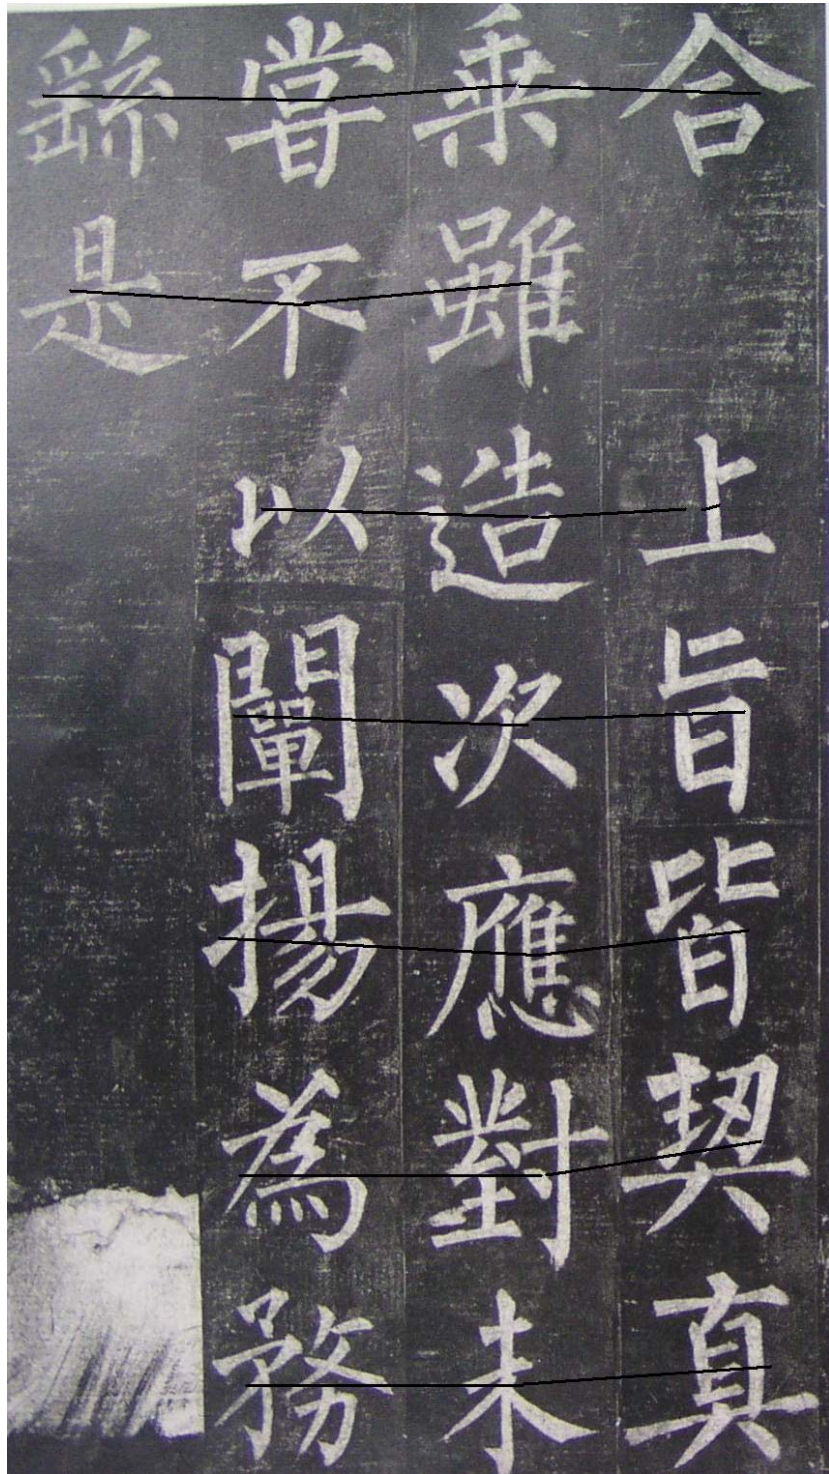 合上旨皆契真
乗雖造次應對未
甞不以闡揚為務
繇是